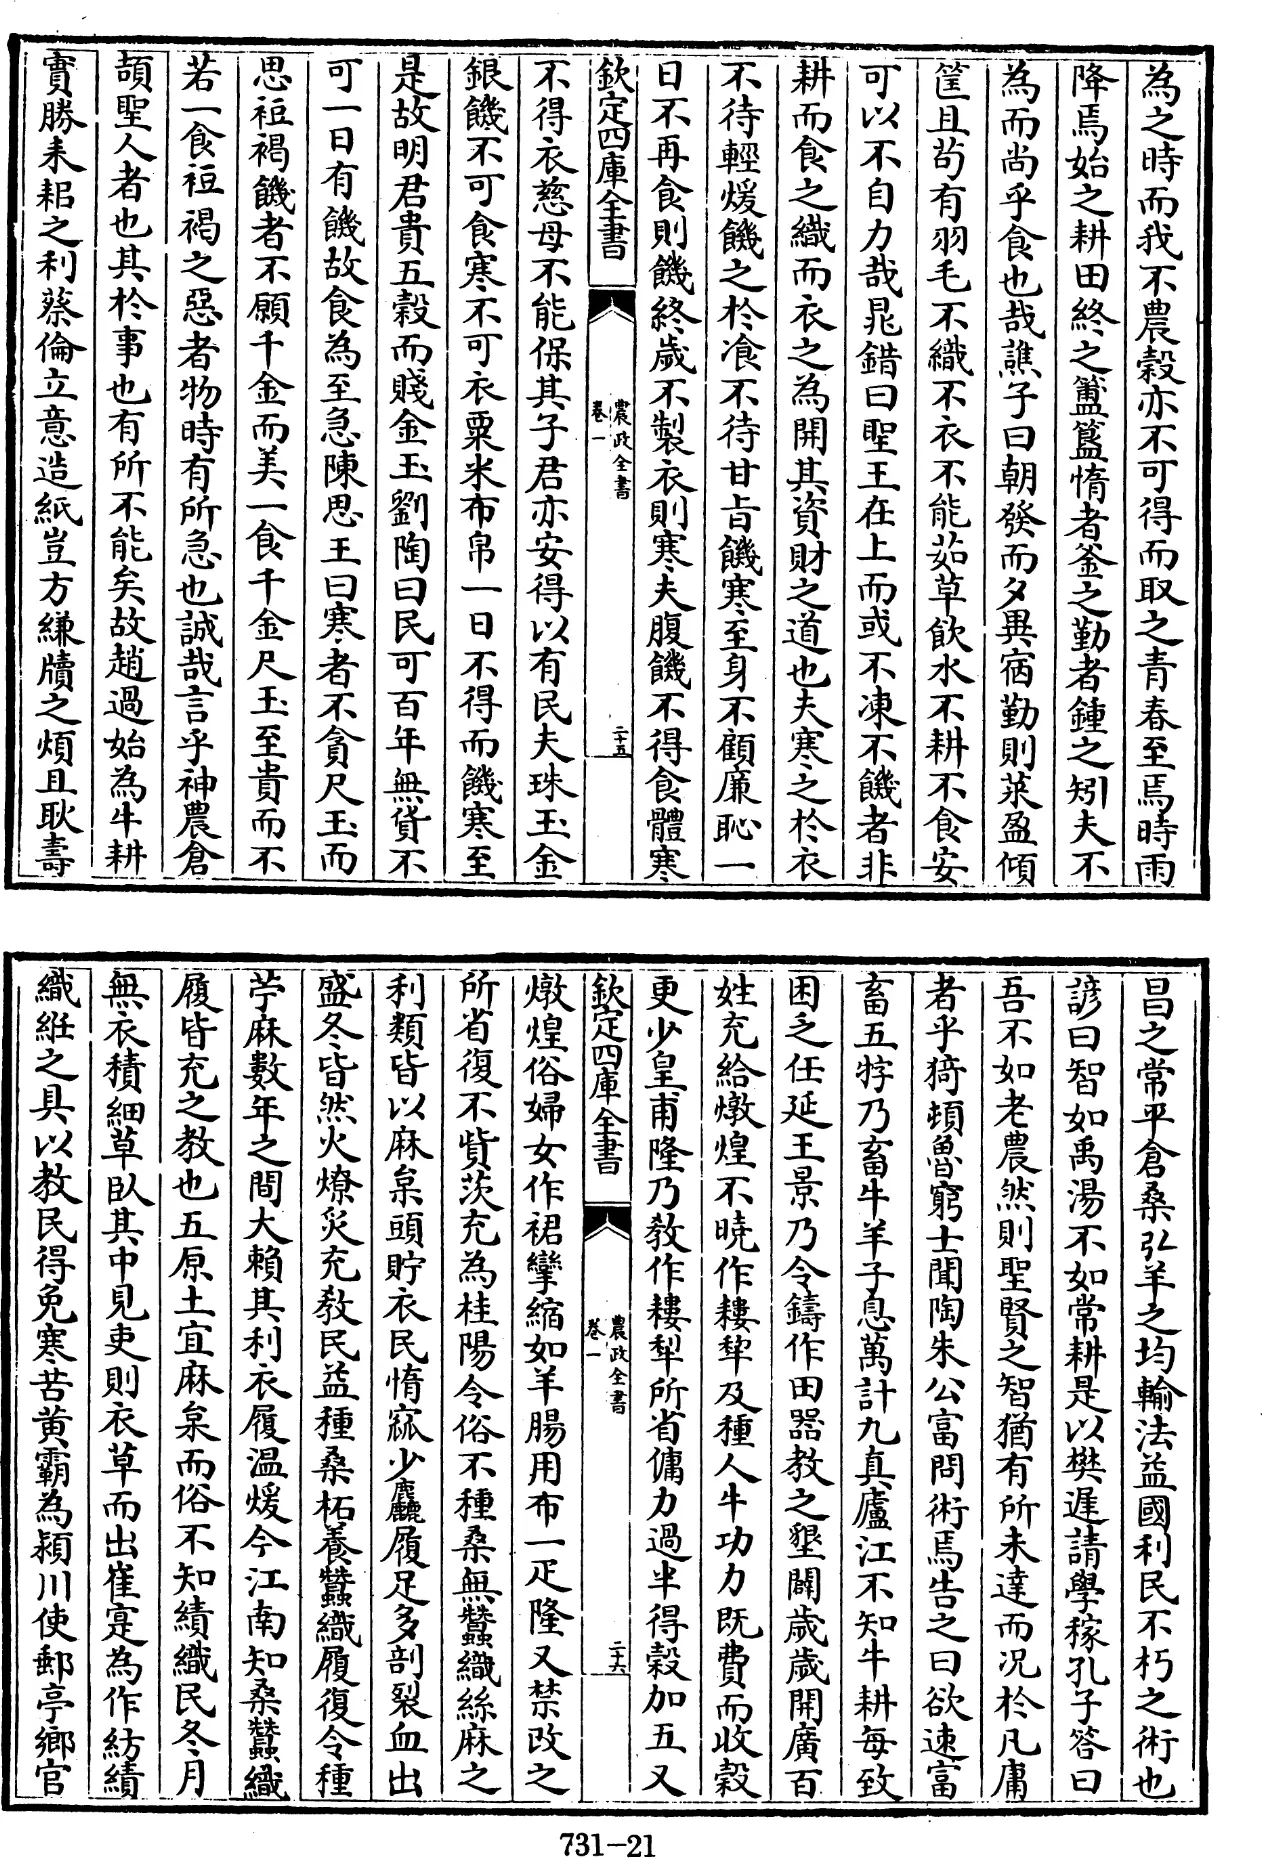 為之時而我不農穀亦不可得而取之青春至焉時雨
降焉始之耕田終之簠簋惰者釜之勤者鍾之矧夫不
為而尚乎食也哉譙子曰朝發而夕異宿勤則菜盈傾
筐且苟有羽毛不織不衣不能茹草飲水不耕不食安
可以不自力哉晁錯曰聖王在上而或不凍不饑者非
耕而食之織而衣之為開其資財之道也夫寒之於衣
不待輕煖饑之於飡不待甘旨饑寒至身不顧廉恥一
日不再食則饑終歲不製衣則寒夫腹饑不得食體寒
欽定四庫全書
農政全書
卷一
二十五
不得衣慈母不能保其子君亦安得以有民夫珠玉金
銀饑不可食寒不可衣粟米布帛一日不得而饑寒至
是故明君貴五穀而賤金玉劉陶曰民可百年無貨不
可一日有饑故食為至急陳思王曰寒者不貪尺玉而
思裋褐饑者不願千金而美一食千金尺玉至貴而不
若一食裋褐之惡者物時有所急也誠哉言乎神農倉
頡聖人者也其於事也有所不能矣故趙過始為牛耕
實勝耒耜之利蔡倫立意造紙豈方縑牘之煩且耿壽
昌之常平倉桑弘羊之均輸法益國利民不朽之術也
諺曰智如禹湯不如常耕是以樊遲請學稼孔子答曰
吾不如老農然則聖賢之智猶有所未達而況於凡庸
者乎猗頓魯窮士聞陶朱公富問術焉告之曰欲速富
畜五牸乃畜牛羊子息萬計九真廬江不知牛耕每致
困乏任延王景乃令鑄作田器教之墾闢歲歲開廣百
姓充給燉煌不曉作耬犂及種人牛功力既費而收穀
更少皇甫隆乃敎作耬犁所省傭力過半得穀加五又
欽定四庫全書
農政全書
卷一
二十六
燉煌俗婦女作裙攣縮如羊腸用布一疋隆又禁改之
所省復不貲茨充為桂陽令俗不種桑無蠶織絲麻之
利類皆以麻枲頭貯衣民惰窳少麤履足多剖裂血出
盛冬皆然火燎炙充敎民益種桑柘養蠶織履復令種
苧麻數年之間大賴其利衣履温煖今江南知桑蠶織
履皆充之教也五原土宜麻枲而俗不知績織民冬月
無衣積細草臥其中見吏則衣草而出崔寔為作紡績
織絍之具以教民得免寒苦黃霸為潁川使郵亭鄉官
731-21